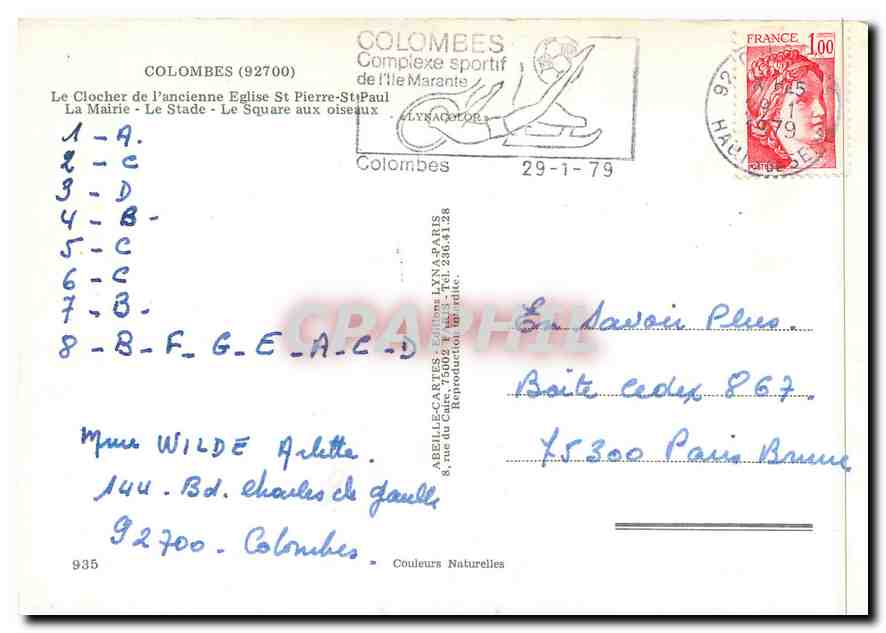 COLOMBES (92700)
Le Clocher de l'ancienne Eglise St Pierre-St Paul
La Mairie - Le Stade - Le Square aux oiseaux
COLOMBES
Complexe sportif
de l'Ile Marante
LYNACOLOR
Colombes 29-1-79
FRANCE 1,00
92
29-1
1979
1 - A.
2 - C
3 - D
4 - B -
5 - C
6 - C
7 - B -
8 - B - F - G - E - A - C - D
Mme WILDE Arlette.
144 - Bd. Charles de Gaulle
92700 - Colombes.
935
Couleurs Naturelles
ABEILLE-CARTES - Editions LYNA-PARIS
8, rue du Caire, 75002 PARIS - Tél. 236.41.28
Reproduction interdite.
CPAPHIL
En Savoir Plus.
Boite Cedex 867.
75300 Paris Brune